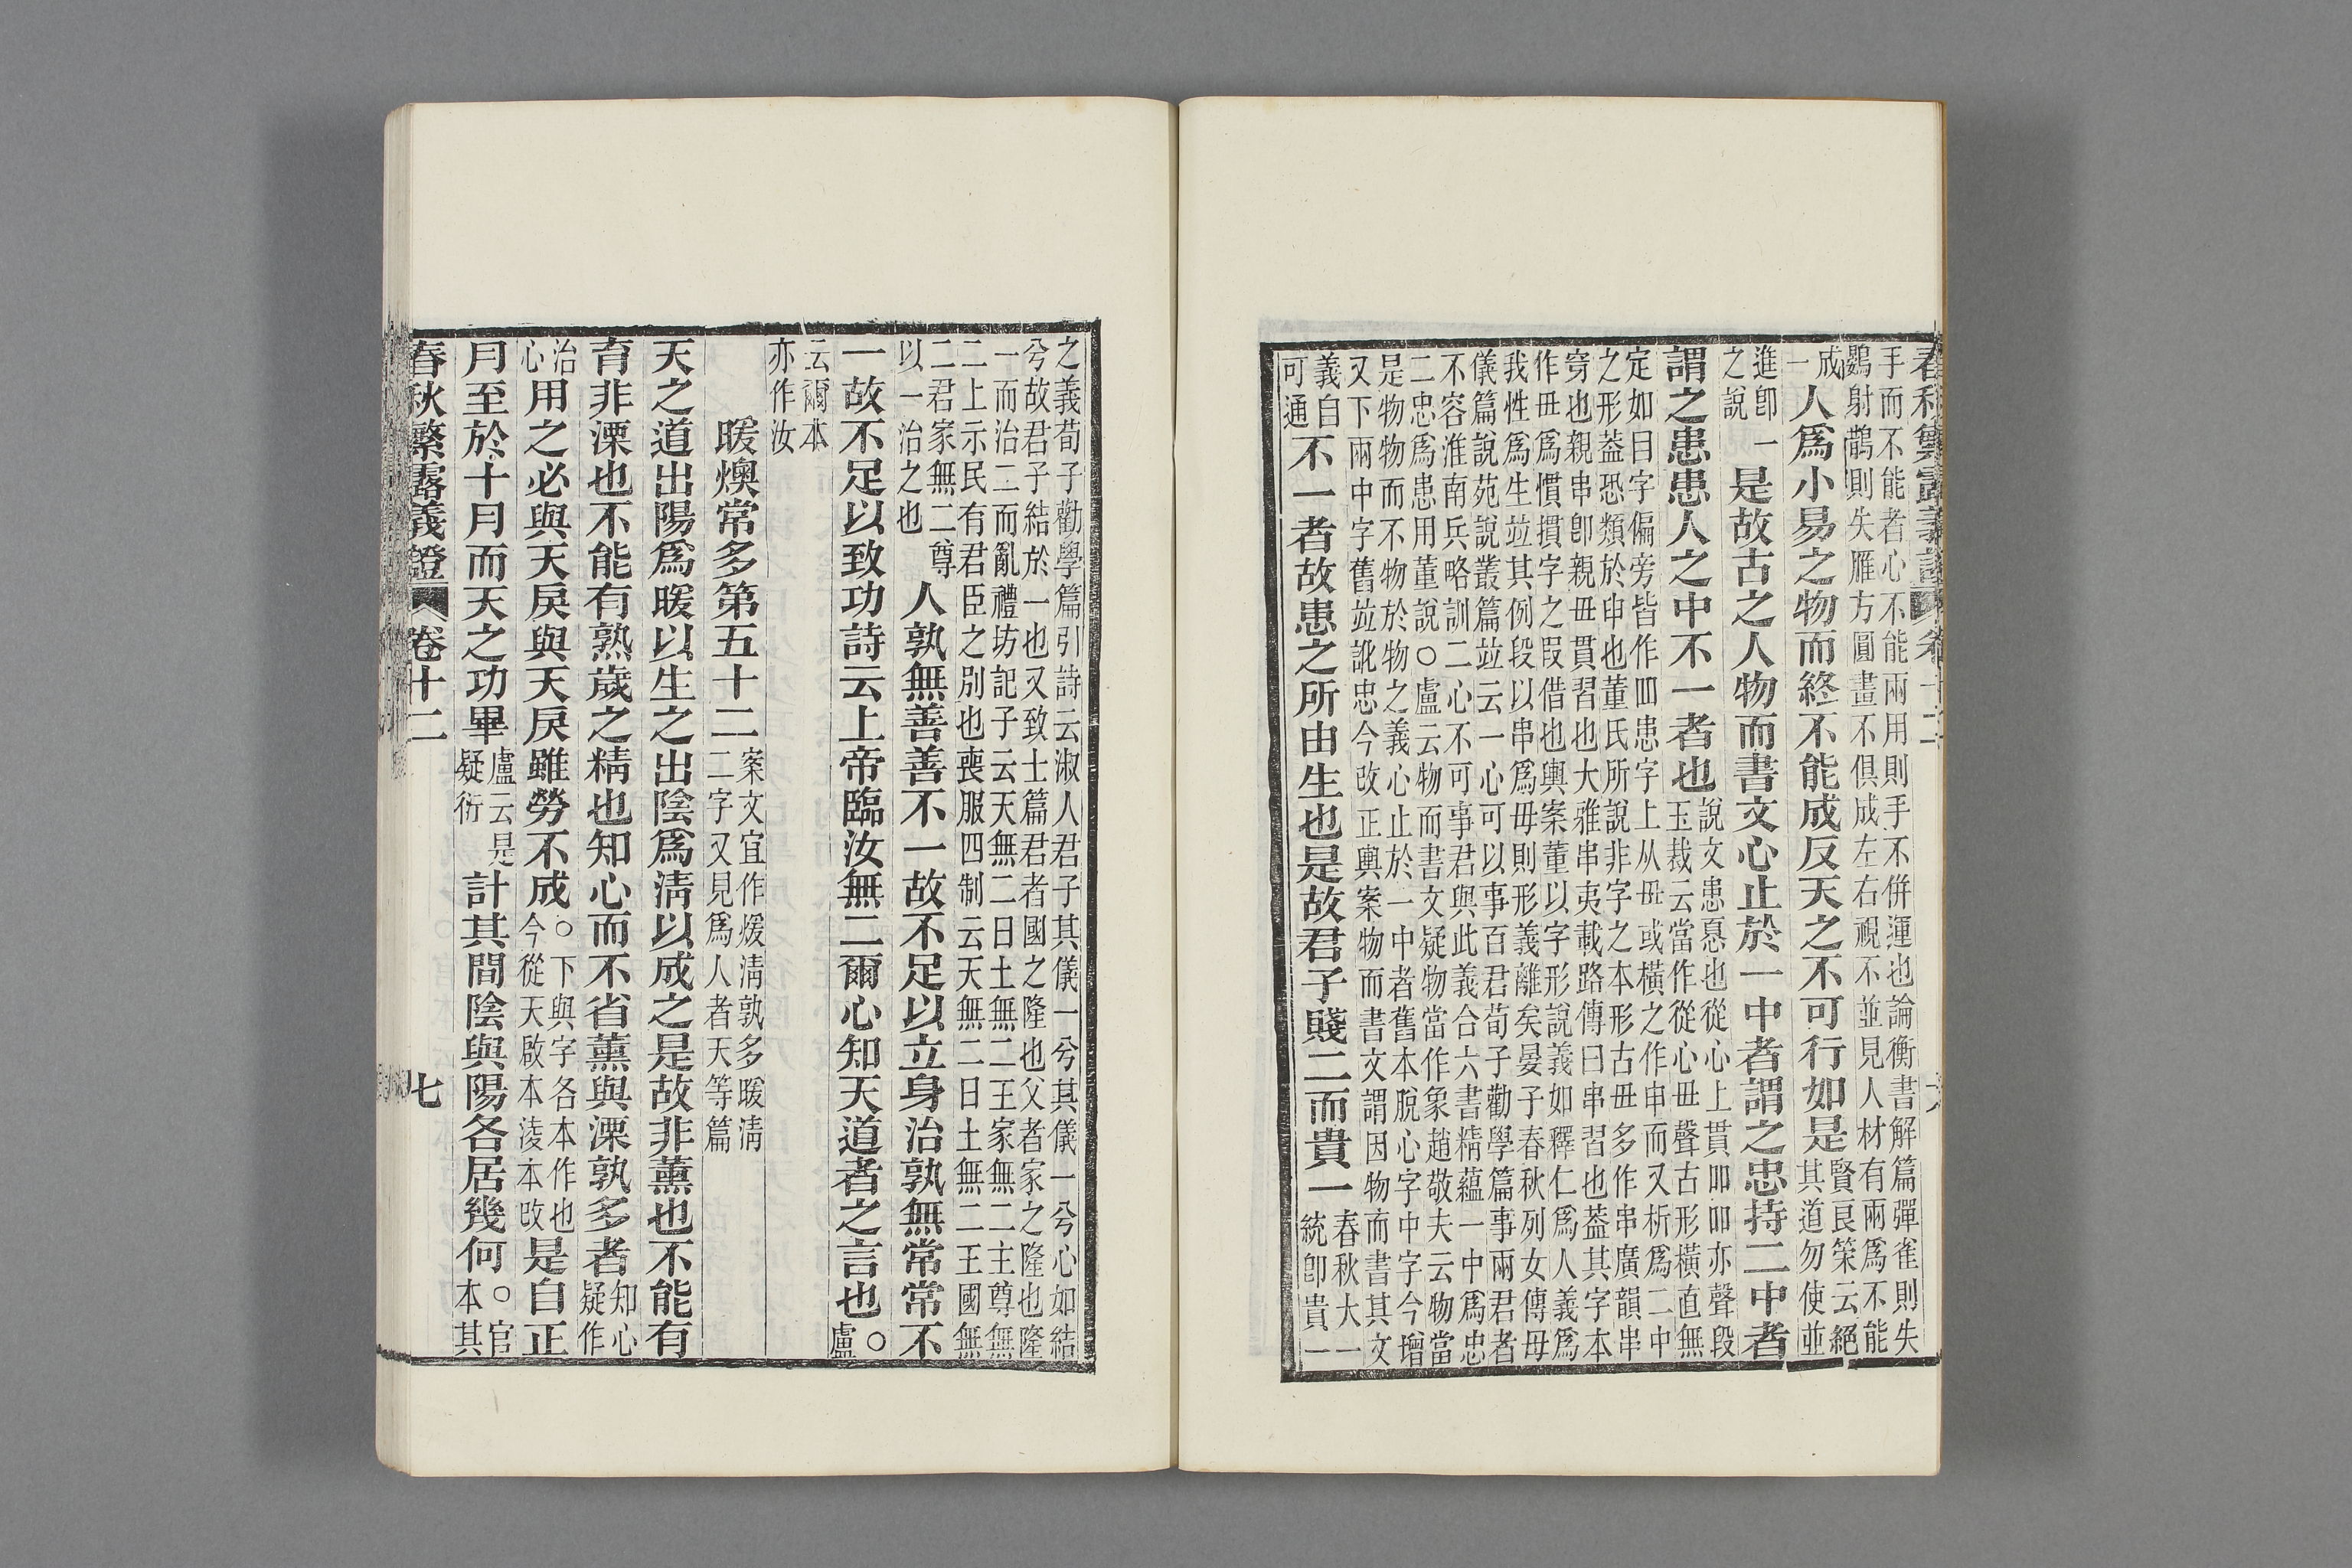 春秋繁露義證 卷十二 六
手而不能者心不能兩用則手不併運也論衡書解篇彈雀則失
鷃射鵲則失雁方圓畫不俱成左右視不並見人材有兩爲不能
成
一
人爲小易之物而終不能成反天之不可行如是
賢良策云絕
其道勿使並
進卽一
之說
是故古之人物而書文心止於一中者謂之忠持二中者
謂之患患人之中不一者也
說文患惪也從心上貫吅吅亦聲段
玉裁云當作從心毌聲古形橫直無
定如目字偏旁皆作罒患字上从毌或橫之作申而又析爲二中
之形葢恐類於申也董氏所說非字之本形古毌多作串廣韻串
穿也親串卽親毌貫習也大雅串夷載路傳曰串習也葢其字本
作毌爲慣摜字之叚借也輿案董以字形說義如釋仁爲人義爲
我性爲生竝其例段以串爲毋則形義離矣晏子春秋列女傳母
儀篇說苑說叢篇竝云一心可以事百君荀子勸學篇事兩君者
不容淮南兵略訓二心不可事君與此義合六書精蘊一中爲忠
二忠爲患用董說○盧云物而書文疑物當作象趙敬夫云物當
是物物而不物於物之義心止於一中者舊本脫心字中字今增
又下兩中字舊竝訛忠今改正輿案物而書文謂因物而書其文
義自
可通
不一者故患之所由生也是故君子賤二而貴一
春秋大一
統卽貴一
之義荀子勸學篇引詩云淑人君子其儀一兮其儀一兮心如結
兮故君子結於一也又致士篇君者國之隆也父者家之隆也隆
一而治二而亂禮坊記子云天無二日土無二王家無二主尊無
二上示民有君臣之別也喪服四制云天無二日土無二王國無
二君家無二尊
以一治之也
人孰無善善不一故不足以立身治孰無常常不
一故不足以致功詩云上帝臨汝無二爾心知天道者之言也
○
盧
云爾本
亦作汝
暖燠常多第五十二
案文宜作煖凊孰多暖凊
二字又見爲人者天等篇
天之道出陽爲暖以生之出陰爲凊以成之是故非薰也不能有
育非溧也不能有熟歲之精也知心而不省薰與溧孰多者
知心
疑作
治
心
用之必與天戾與天戾雖勞不成
○下與字各本作也
今從天啟本淩本改
是自正
月至於十月而天之功畢
盧云是
疑衍
計其間陰與陽各居幾何
○官
本其
春秋繁露義證 卷十二 七